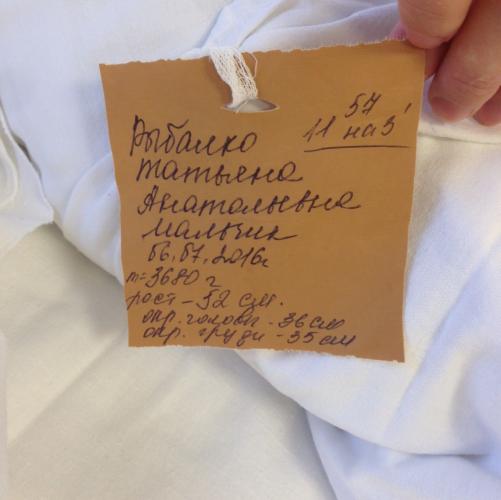 Рыбалко
Татьяна
Анатольевна
мальчик
06.07.2016г
11 57 на 3'
m=3680 г
рост - 52 см.
окр. головы - 36 см
окр. груди - 35 см